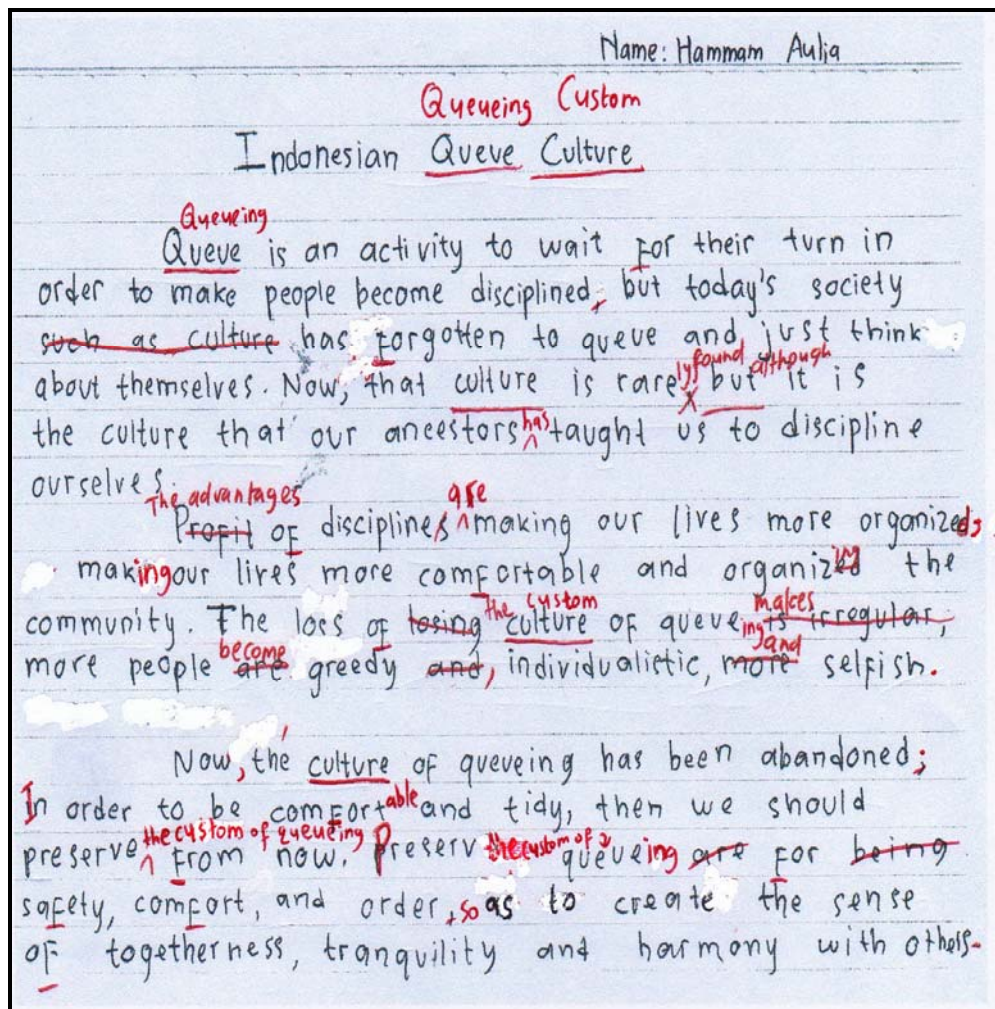 Name: Hammam Aulia
Queueing Custom
Indonesian Queue Culture
Queueing
Queue is an activity to wait for their turn in
order to make people become disciplined, but today's society
such as culture has forgotten to queue and just think
ly found although
about themselves. Now, that culture is rare but it is
has
the culture that our ancestors taught us to discipline
ourselves.
The advantages are
Profit of discipline making our lives more organized,
making our lives more comfortable and organizing the
the custom makes
community. The loss of losing culture of queueing is irregular,
become and
more people are greedy and, individualistic, more selfish.
Now, the culture of queueing has been abandoned;
able
In order to be comfort and tidy, then we should
the custom of queueing the custom of
preserve from now. Preserv queueing are for being
safety, comfort, and order, so as to create the sense
of togetherness, tranquility and harmony with others.